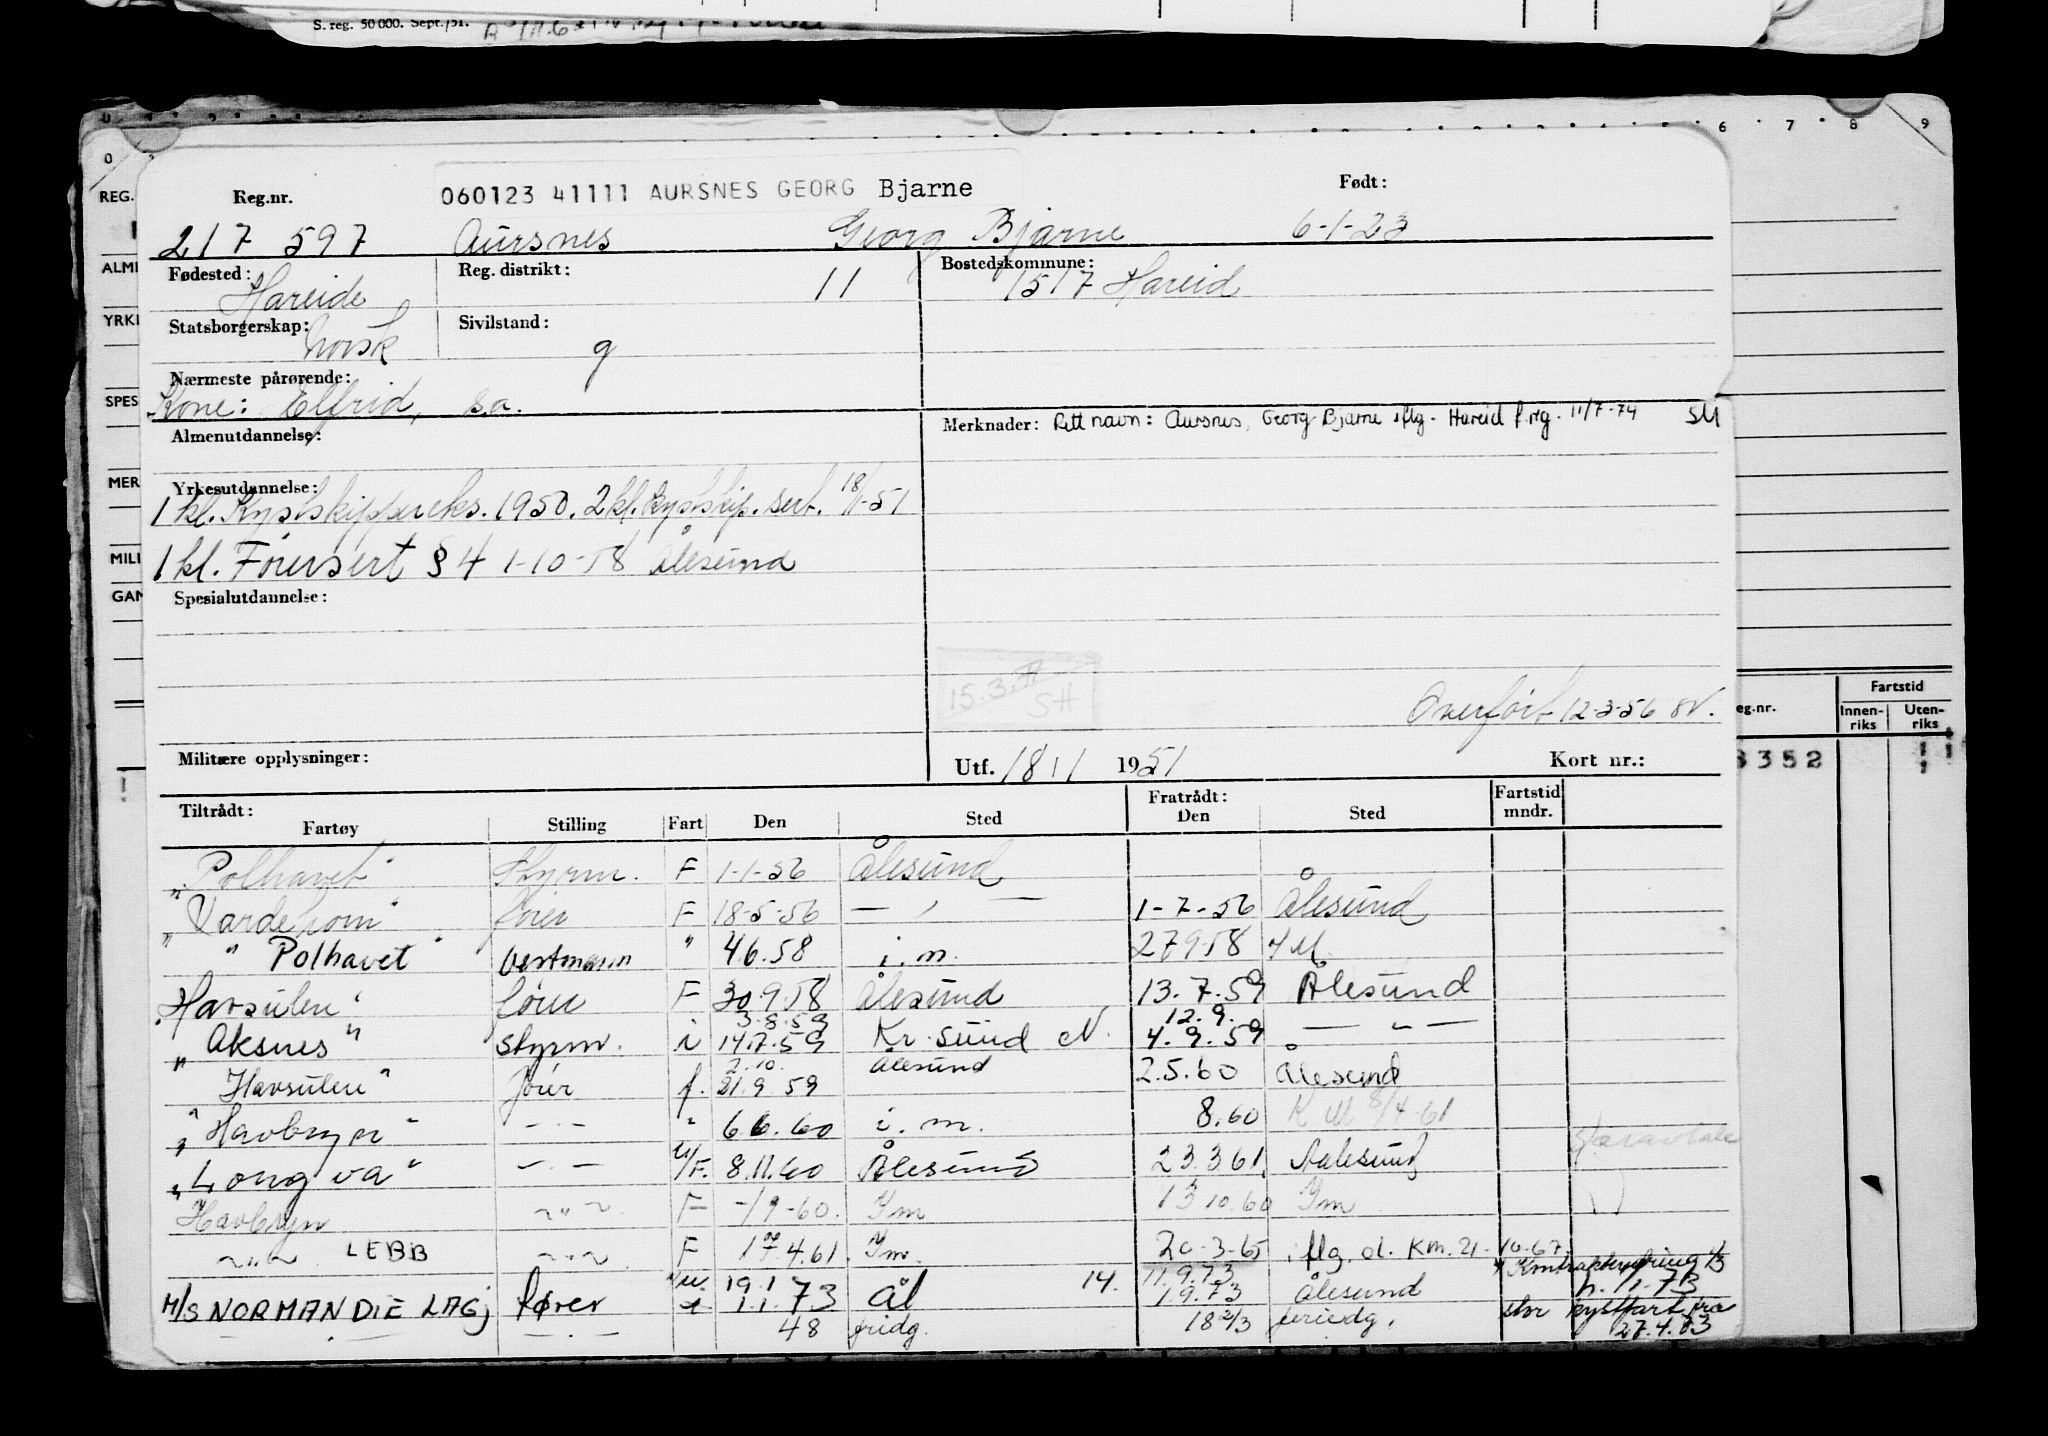 S. reg. 50 000. Sept./51.
0 6 7 8 9
REG.
Reg.nr. 060123 41111 AURSNES GEORG Bjarne Født:
217 597 Aursnes Georg Bjarne 6-1-23
ALME Fødested: Reg. distrikt: Bostedskommune:
Hareide 11 1517 Hareid
YRKE Statsborgerskap: Sivilstand:
Norsk g
Nærmeste pårørende:
SPES Kone: Elfrid, s.a.
Almenutdannelse: Merknader: Rett navn: Aursnes, Georg Bjarne iflg. Hareid f.reg. 11/7-74 SM
MER Yrkesutdannelse:
1 kl. Kystskippereks. 1950. 2 kl. kystskip. sert. 18/1-51
MILI 1 kl. Førersert § 4 1-10-58 Ålesund
GAM Spesialutdannelse:
15.3. SH
Overført 12-3-56
eg.nr. Fartstid
Innen-riks Uten-riks
Militære opplysninger: Utf. 18/1 1951 Kort nr.: 352
Tiltrådt: Fratrådt: Fartstid
Fartøy Stilling Fart Den Sted Den Sted mndr.
"Polhavet" Styrm. F 1-1-56 Ålesund
"Vardehorn" fører F 18-5-56 — " — 1-7-56 Ålesund
" Polhavet " bestmann " 4.6.58 i.m. 27.9.58 i.m.
"Havsulen" fører F 30.9.58 Ålesund 13.7.59 Ålesund
3.8.59 12.9.
"Aksnes" styrm. i 14.7.59 Kr.sund N. 4.9.59 — " —
2.10. Ålesund
"Havsulen" fører f. 21.9.59 2.5.60 Ålesund
"Havbryn" — " — " 6.6.60 i.m. 8.60 8/4-61
"Longva" — " — u/F. 8.11.60 Ålesund 23.3.61 Aalesund
Havbryn — " — F -/9-60. Ym 13.10.60 Ym
— " — LEBB — " — F 17.4.61. Ym. 20-3-65 iflg. d. Km. 21-10-67
19.1 14. 11.9.73 h. 1/1-73
M/S NORMANDIE LAGJ fører 1.1.73 Ål 1.9.73 Ålesund
— " — 48 fridg. 18 2/3 feriedg. stor kystfart fra
27.4.73